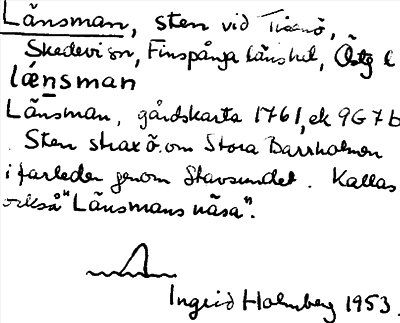 Länsman, sten vid Tisenö,
Skedevi sn, Finspånga läns hd, Östg l
lænsman
Länsman, gårdskarta 1761, ek 9G7b
. Sten strax ö. om Stora Barrholmen
i farleden genom Stavsundet. Kallas
också "Länsmans näsa".
Ingrid Holmberg 1953.